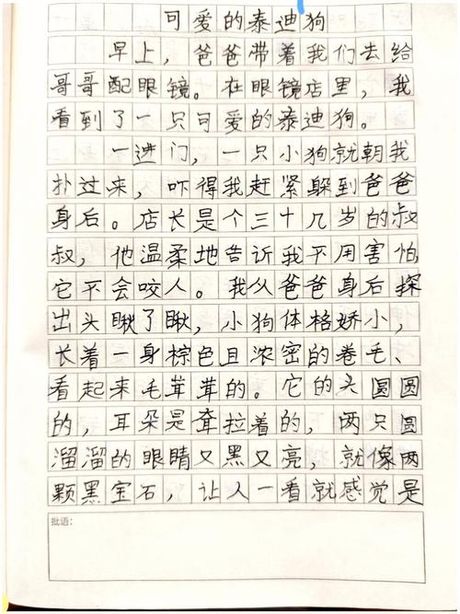 可爱的泰迪狗
早上，爸爸带着我们去给
哥哥配眼镜。在眼镜店里，我
看到了一只可爱的泰迪狗。
一进门，一只小狗就朝我
扑过来，吓得我赶紧躲到爸爸
身后。店长是个三十几岁的叔
叔，他温柔地告诉我不用害怕
它不会咬人。我从爸爸身后探
出头瞅了瞅，小狗体格娇小，
长着一身棕色且浓密的卷毛、
看起来毛茸茸的。它的头圆圆
的，耳朵是耷拉着的，两只圆
溜溜的眼睛又黑又亮，就像两
颗黑宝石，让人一看就感觉是
批语：